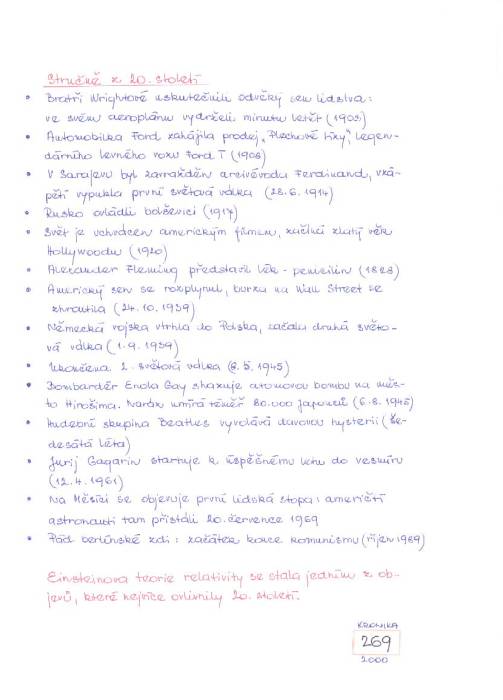 Stručně z 20. století
• Bratři Wrightové uskutečnili odvěký sen lidstva:
ve svém aeroplánu vydrželi minutu letět (1903)
• Automobilka Ford zahájila prodej „Plechové lízy", legen-
dárního levného vozu Ford T (1908)
• V Sarajevu byl zavražděn arcivévoda Ferdinand, vzá-
pětí vypukla první světová válka (28.6.1914)
• Rusko ovládli bolševici (1917)
• Svět je uchvácen americkým filmem, začíná zlatý věk
Hollywoodu (1920)
• Alexander Fleming představil lék - penicilin (1828)
• Americký sen se rozplynul, burza na Wall Street se
zhroutila (24.10.1939)
• Německá vojska vtrhla do Polska, začala druhá světo-
vá válka (1.9.1939)
• Ukončena 2. světová válka (8.5.1945)
• Bombardér Enola Gay shazuje atomovou bombu na měs-
to Hirošima. Naráz umírá téměř 80.000 japonců (6.8.1945)
• Hudební skupina Beatles vyvolává davovou hysterii (še-
desátá léta)
• Jurij Gagarin startuje k úspěšnému letu do vesmíru
(12.4.1961)
• Na Měsíci se objevuje první lidská stopa: američtí
astronauti tam přistáli 20. července 1969
• Pád berlínské zdi: začátek konce komunismu (říjen 1989)
Einsteinova teorie relativity se stala jedním z ob-
jevů, které nejvíce ovlivnily 20. století.
KRONIKA
269
2000